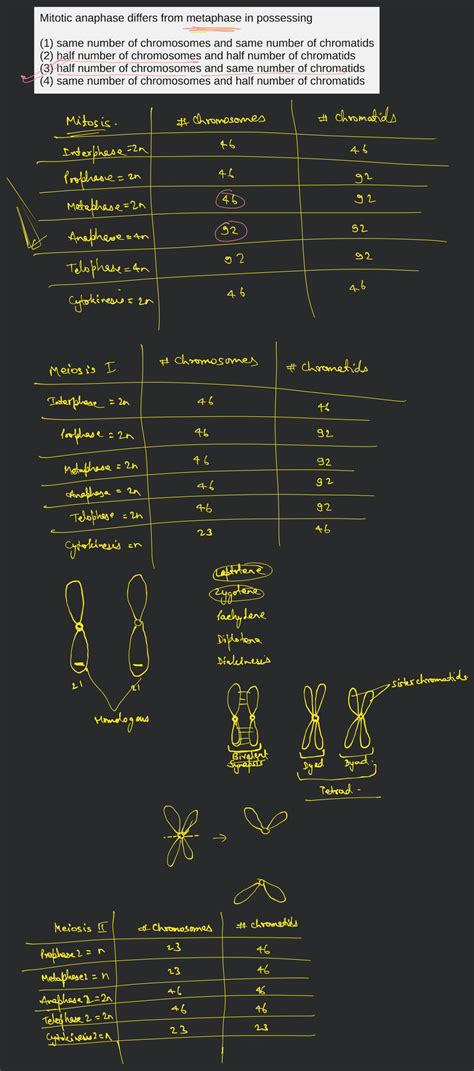 Mitotic anaphase differs from metaphase in possessing
(1) same number of chromosomes and same number of chromatids
(2) half number of chromosomes and half number of chromatids
(3) half number of chromosomes and same number of chromatids
(4) same number of chromosomes and half number of chromatids
Mitosis. # Chromosomes # Chromatids
Interphase = 2n 46 46
Prophase = 2n 46 92
Metaphase = 2n 46 92
Anaphase = 4n 92 92
Telophase = 4n 92 92
Cytokinesis = 2n 46 46
Meiosis I # Chromosomes # Chrometids
Interphase = 2n 46 46
Prophase = 2n 46 92
Metaphase = 2n 46 92
Anaphase = 2n 46 92
Telophase = 2n 46 92
Cytokinesis = n 23 46
Leptotene
Zygotene
Pachytene
Diplotene
Diakinesis
21 21
Homologous
Sister chromatids
Bivalent
Synapsis
Dyad Dyad.
Tetrad.
Meiosis II # Chromosomes # chrometids
Prophase 2 = n 23 46
Metaphase 2 = n 23 46
Anaphase 2 = 2n 46 46
Telophase 2 = 2n 46 46
Cytokinesis 2 = n 23 23